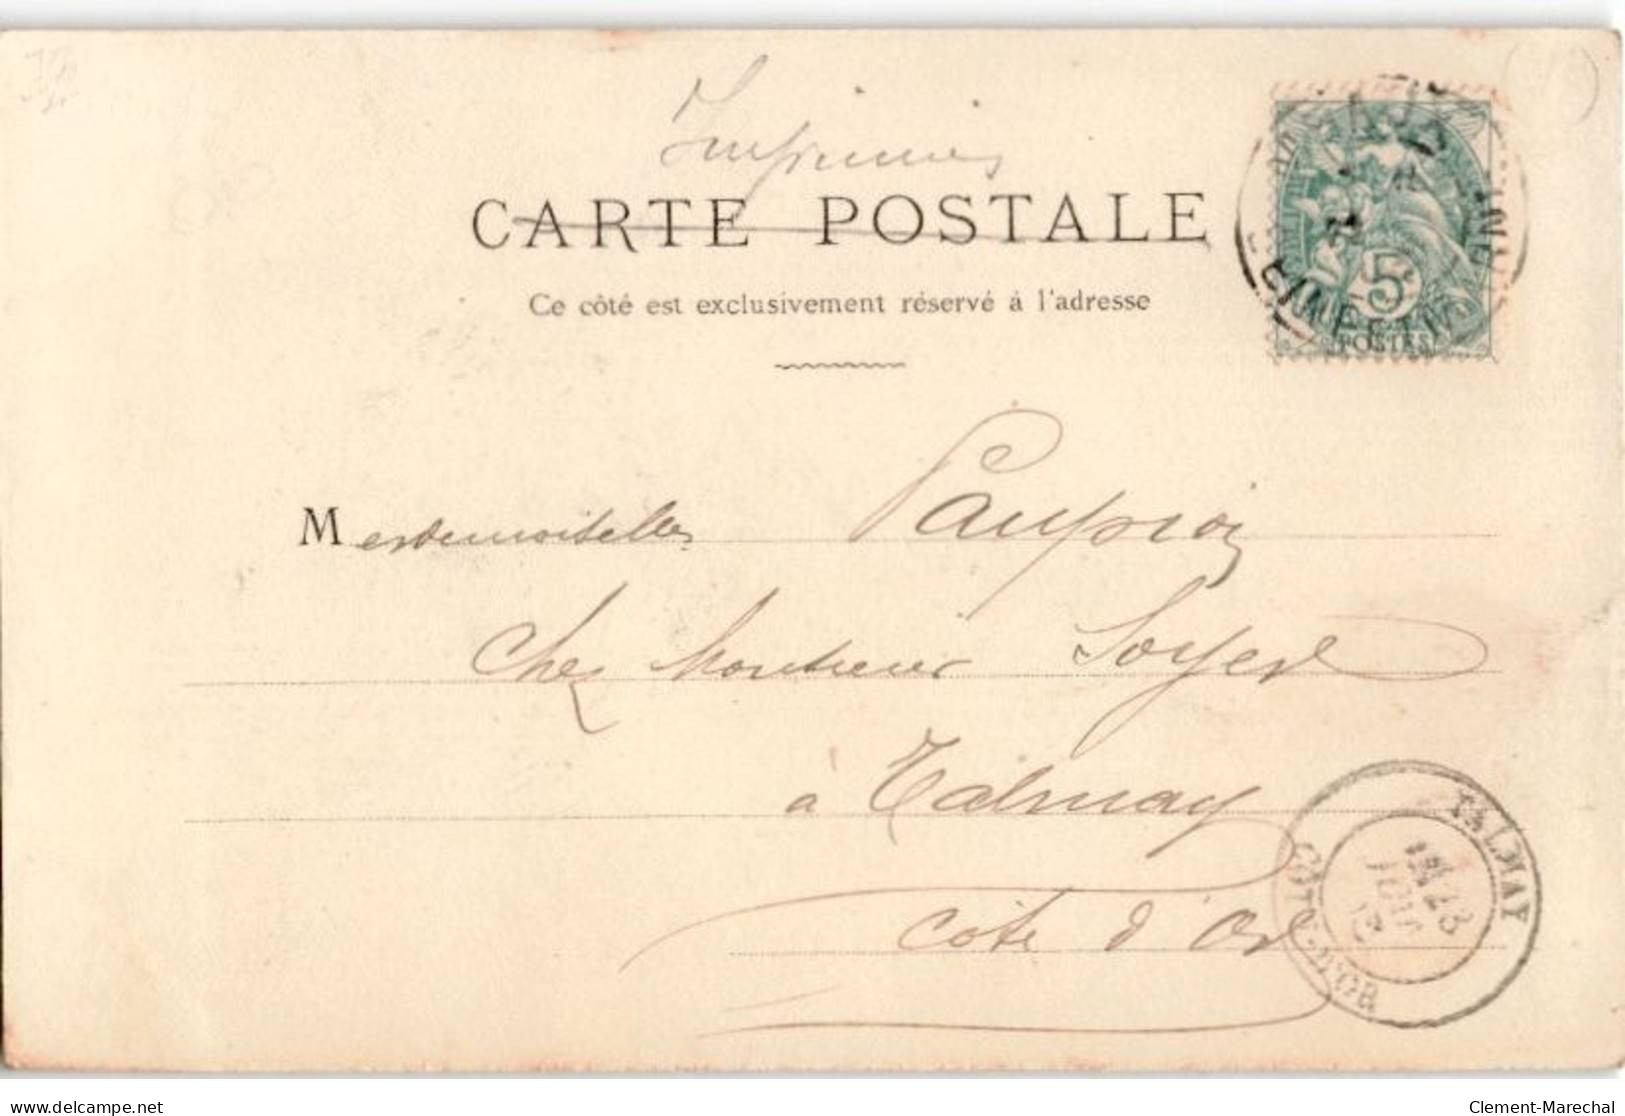 Imprimés
CARTE POSTALE
Ce côté est exclusivement réservé á l'adresse
5
POSTES
GAMBETTA
Mesdemoiselles Paupion
chez Monsieur Soyer
à Talmay
Côte d'Or
TALMAY
23
CÔTE-D'OR
delcampe.net
Clement-Marechal